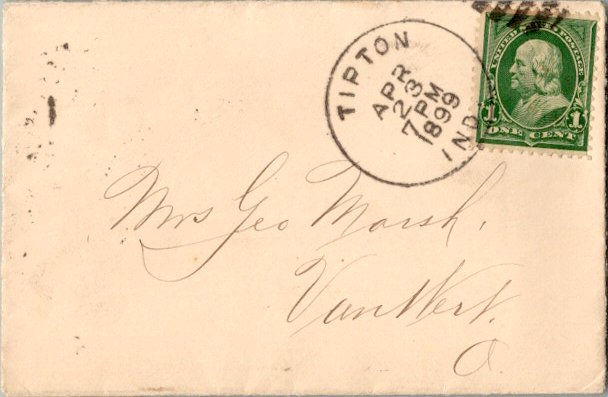 TIPTON
APR
23
7 PM
1899
IND
UNITED STATES POSTAGE
1 1
ONE CENT
Mrs Geo Marsh,
Van Wert.
O.